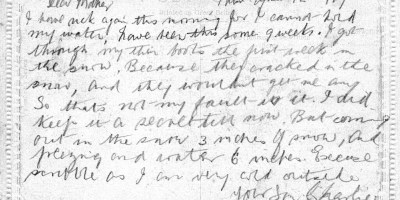 Dear Mother,
I have sick again this morning for I cannot hold
my water, have been this some 3 weeks. I got
through my thin boots the first week in
the snow. Because they cracked in the
snow, and they wouldnt get me any
So thats not my fault is it. I did
keep it a secret till now. But coming
out in the snow 3 inches of snow, and
freezing and water 6 inches. Excuse
scribble as I am very cold outside
Your Son Charlie